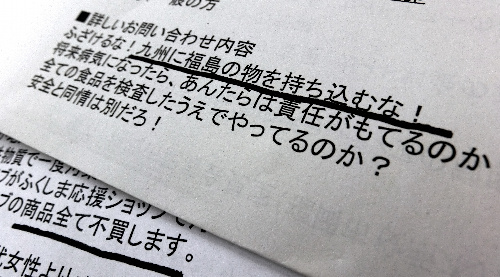 般の方
■詳しいお問い合わせ内容
ふざけるな！九州に福島の物を持ち込むな！
将来病気になったら、あんたらは責任がもてるのか
全ての食品を検査したうえでやってるのか？
安全と同情は別だろ！
物質で一度汚
プがふくしま応援ショップ
プの商品全て不買します。
代女性より